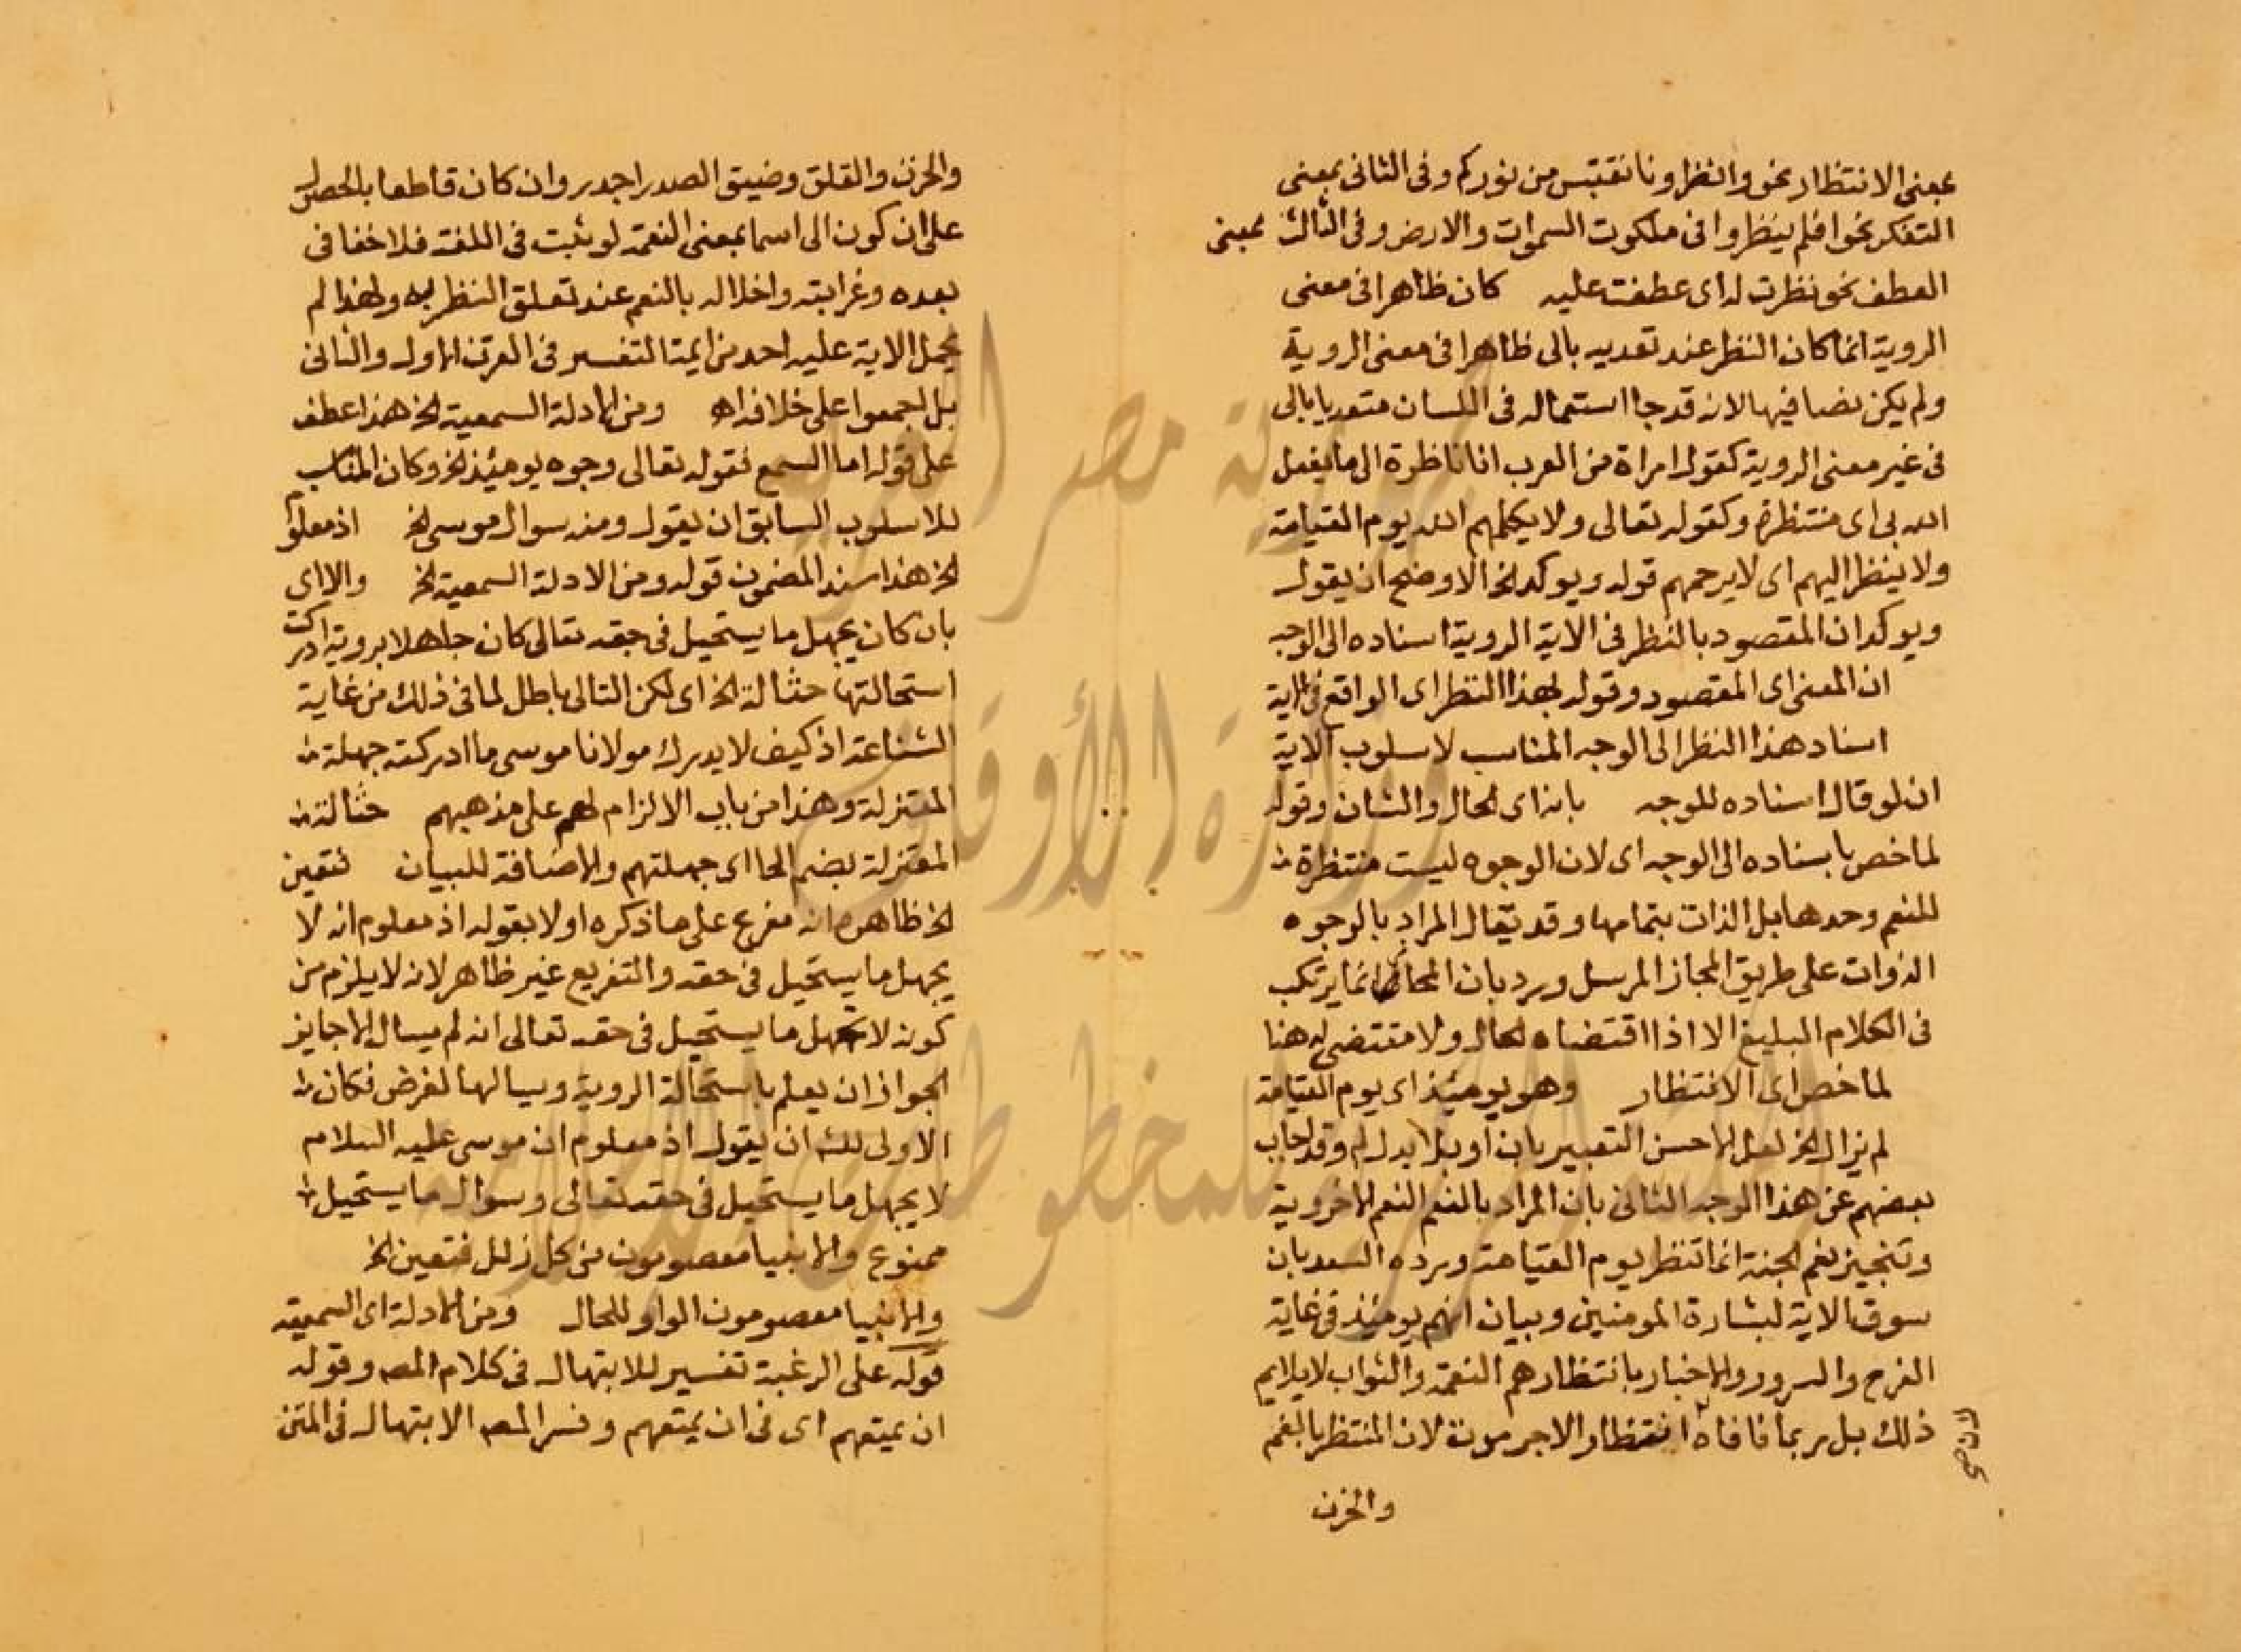 بمعنى الانتظار نحو وانظرونا نقتبس من نوركم وفى الثانى بمعنى
التفكر نحو افلم ينظروا فى ملكوت السموات والارض وفى الثالث بمعنى
العطف نحو نظرت له اى عطفت عليه كان ظاهرا فى معنى
الروية انما كان النظر عند تعديه بالى ظاهرا فى معنى الروية
ولم يكن نصا فيها لانه قد جا استعماله فى اللسان متعديا بالى
فى غير معنى الروية كقول امراة من العرب انا ناظرة الى ما يفعل
الله بى اى منتظرة وكقوله تعالى ولا يكلمهم الله يوم القيامة
ولا ينظر اليهم اى لا يرحمهم قوله ويوكد الخ الاوضح ان يقول
ويوكد ان المقصود بالنظر فى الاية الروية اسناده الى الوجه
ان المعنى اى المقصود وقوله بهذا النظر اى الواقع فى الاية
اسناد هذا النظر الى الوجه المناسب لاسلوب الاية
ان لو قال اسناده للوجه بانه اى الحال والشان وقوله
لما خص باسناده الى الوجه اى لان الوجوه ليست منتظرة
للنعم وحدها بل الذات بتمامها وقد يقال المراد بالوجوه
الذوات على طريق المجاز المرسل ورد بان المجاز انما يرتكب
فى الكلام البليغ الا اذا اقتضاه الحال ولا مقتضى له هنا
لما خص اى الانتظار وهو يومئذ اى يوم القيامة
لم يزال الخ لعل الاحسن التعبير بان او بلا بدل لم وقد اجاب
بعضهم عن هذا الوجه الثانى بان المراد بالنعم النعم الاخروية
وتنجيز نعم الجنة انما تنظر يوم القيامة ورده السعد بان
سوق الاية لبشارة المومنين وبيان انهم يومئذ فى غاية
الفرح والسرور والاخبار بانتظارهم النعمة والثواب لا يلايم
ذلك بل ربما نافاه لان انتظار الاجر موت لان المنتظر بالغم
والحزن
والحزن والقلق وضيق الصدر اجدر وان كان قاطعا بالحصول
على ان كون الى اسما بمعنى النعمة لو ثبت فى اللغة فلا خفا فى
بعده وغرابته واخلاله بالنعم عند تعلق النظر به ولهذا لم
يحمل الاية عليه احد من ايمة التفسير فى القرن الاول والثانى
بل اجمعوا على خلافه اه ومن الادلة السمعية الخ هذا عطف
على قوله اما السمع فقوله تعالى وجوه يومئذ الخ وكان المناسب
للاسلوب السابق ان يقول ومنه سوال موسى الخ اذ معلوم
الخ هذا سند المضمون قوله ومن الادلة السمعية الخ والا اى
بان كان يجهل ما يستحيل فى حقه تعالى كان جاهلا بروية ادركت
استحالتها حثالة الخ اى لكن التالى باطل لما فى ذلك من غاية
الشناعة اذ كيف لا يدرك مولانا موسى ما ادركته جهلة
المعتزلة وهذا من باب الالزام لهم على مذهبهم حثالة
المعتزلة بضم الحا اى جهلتهم والاضافة للبيان فتعين
الخ ظاهره انه مفرع على ما ذكره اولا بقوله اذ معلوم انه لا
يجهل ما يستحيل فى حقه والتفريع غير ظاهر لانه لا يلزم من
كونه لا يجهل ما يستحيل فى حقه تعالى انه لم يسال الا جايز
الجواز ان يعلم باستحالة الروية ويسالها لغرض فكان
الاولى للشه ان يقول اذ معلوم ان موسى عليه السلام
لا يجهل ما يستحيل فى حقه تعالى وسوال ما يستحيل
ممنوع والانبيا معصومون من كل زلل فتعين الخ
والانبيا معصومون الواو للحال ومن الادلة اى السمعية
قوله على الرغبة تفسير للابتهال فى كلام المصه وقوله
ان يمتعهم اى فى ان يمتعهم وفسر المصه الابتهال فى المتن
جمهورية مصر العربية
وزارة الأوقاف